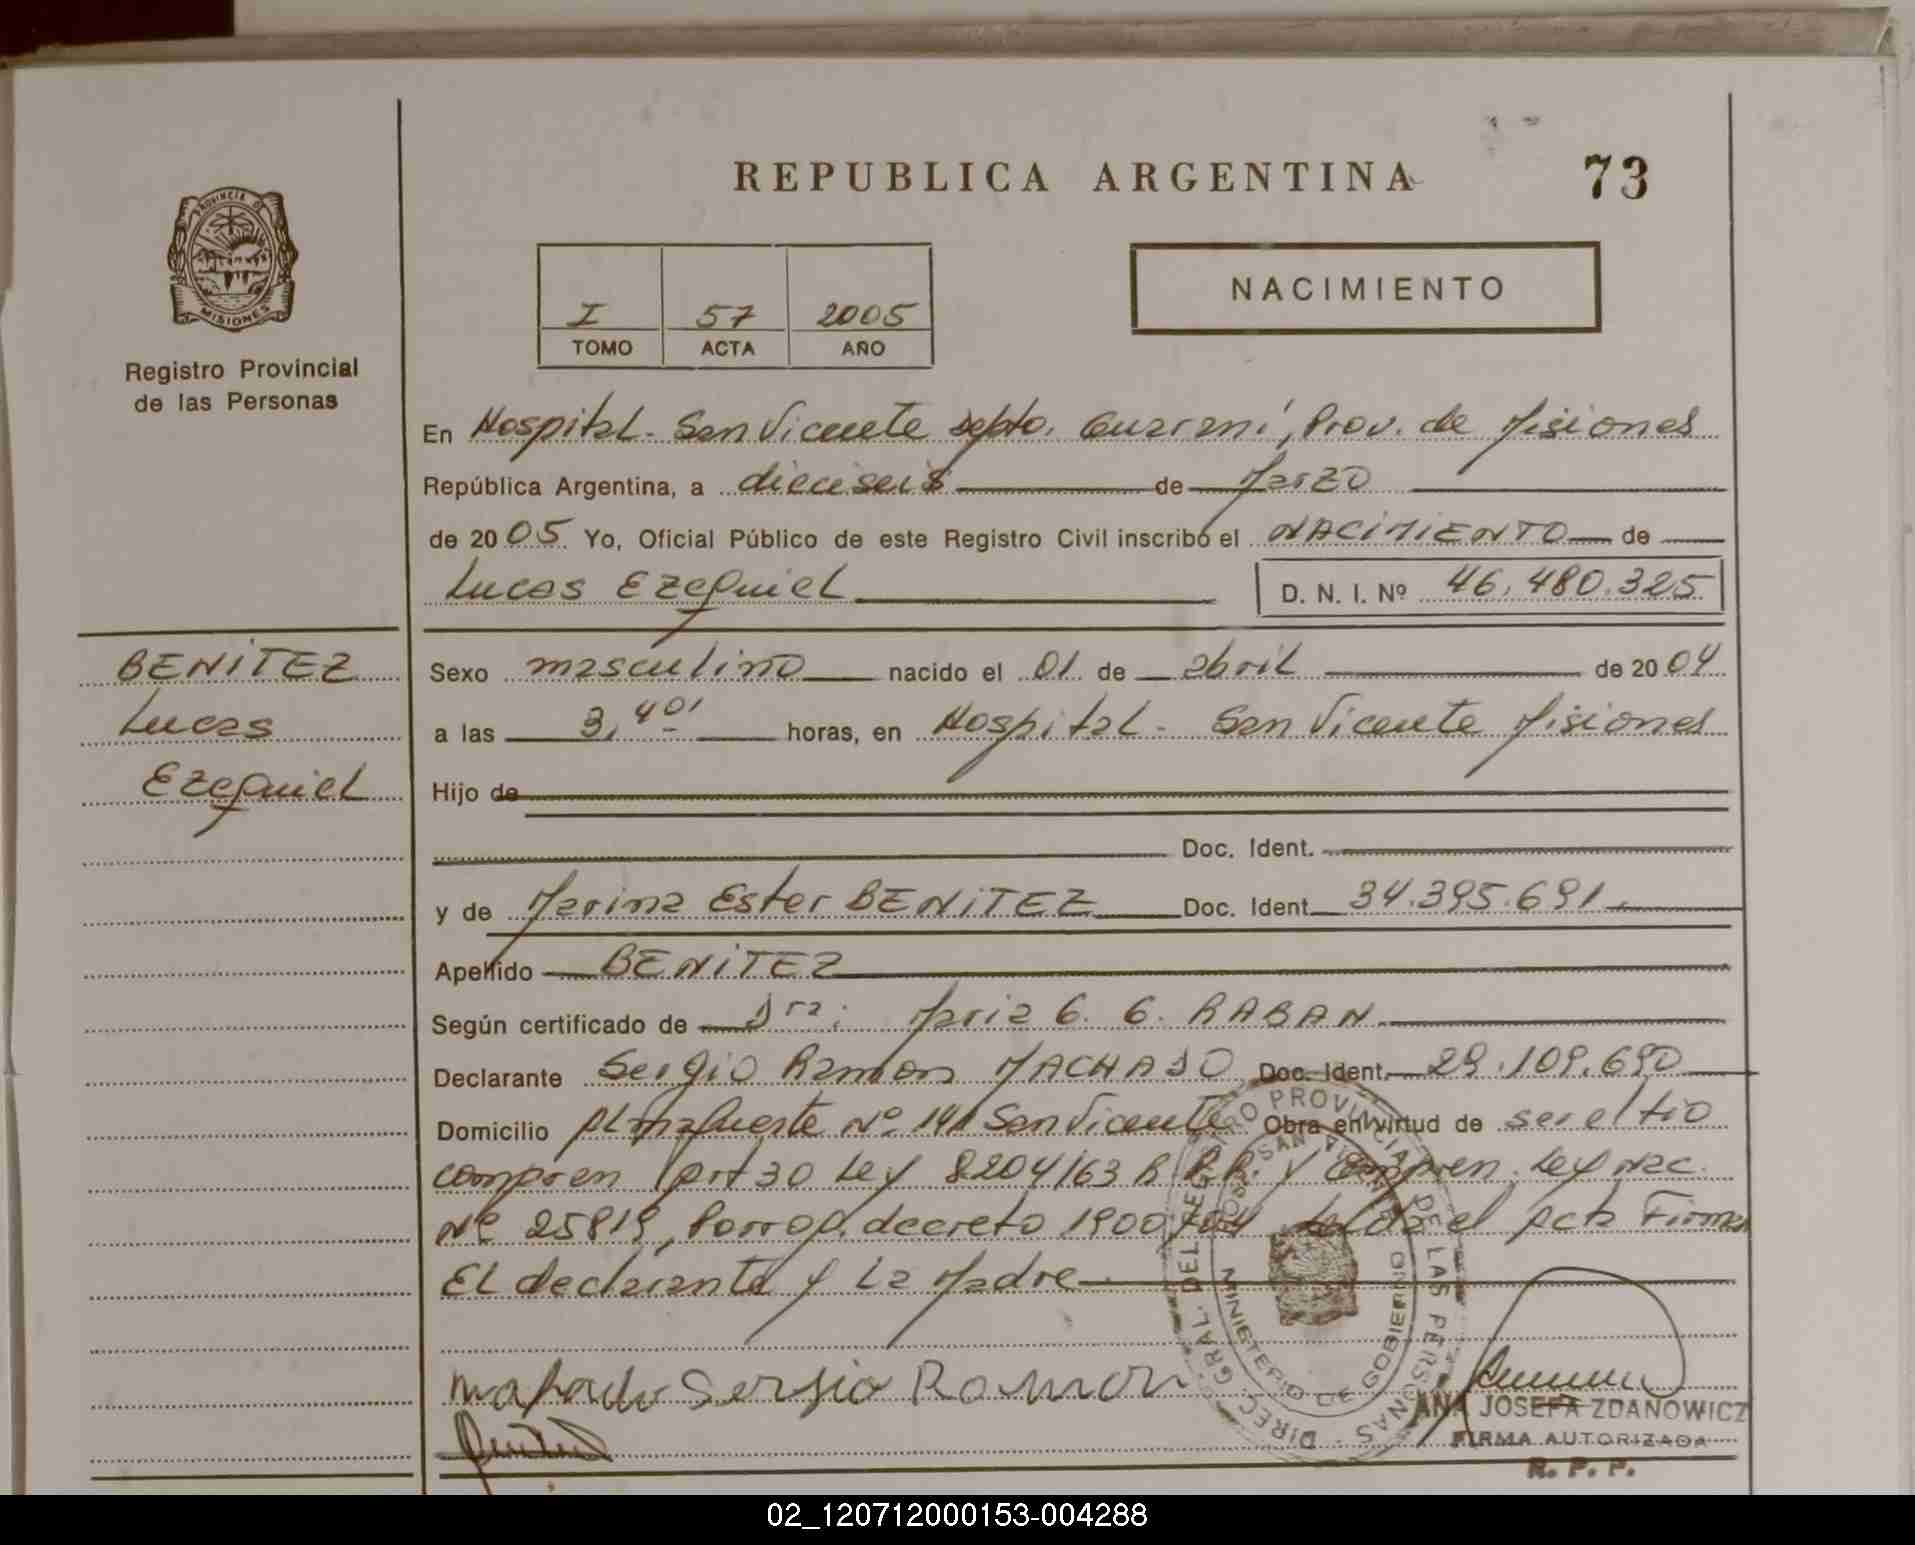 REPUBLICA ARGENTINA
73
PROVINCIA DE
MISIONES
Registro Provincial
de las Personas
I 57 2005
TOMO ACTA AÑO
NACIMIENTO
En Hospital - San Vicente Depto. Guaraní, Prov. de Misiones
República Argentina, a dieciseis de Marzo
de 2005 Yo, Oficial Público de este Registro Civil inscribo el NACIMIENTO de
Lucas Ezequiel D. N. I. Nº 46.480.325
BENITEZ
Lucas
Ezequiel
Sexo masculino nacido el 01 de abril de 2004
a las 3,40' horas, en Hospital - San Vicente Misiones
Hijo de
Doc. Ident.
y de Marina Ester BENITEZ Doc. Ident. 34.395.691.
Apellido BENITEZ
Según certificado de Dra: Maria G. G. RABAN
Declarante Sergio Ramon MACHADO Doc. Ident. 29.109.690
Domicilio Nº 141 San Vicente Obra en virtud de ser el tio
compren Art 30 Ley 8204/63 R.P.P. y Compren. Ley Nac.
Nº 25819, Prorrog. decreto 1900/04 Leida el Acta Firman
El declarante y La Madre
Machado Sergio Ramon
DIREC. GRAL. DEL REGISTRO PROVINCIAL DE LAS PERSONAS
MINISTERIO DE GOBIERNO
SAN VICENTE
ANA JOSEFA ZDANOWICZ
FIRMA AUTORIZADA
R. P. P.
02_120712000153-004288